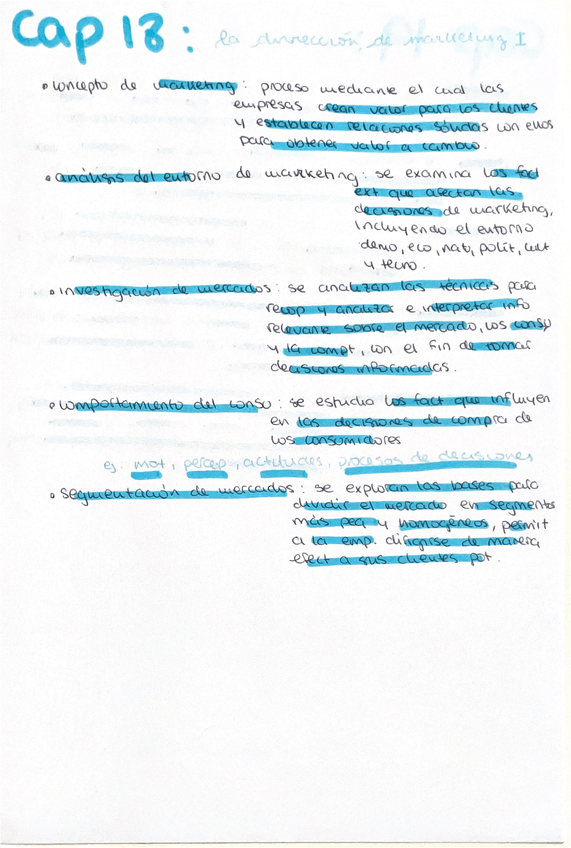 Cap 18: la dirección de marketing I
• concepto de marketing: proceso mediante el cual las
empresas crean valor para los clientes
y establecen relaciones sólidas con ellos
para obtener valor a cambio.
• análisis del entorno de marketing: se examina los fact
ext que afectan las
decisiones de marketing,
incluyendo el entorno
demo, eco, nat, polit, cult
y tecno.
• investigación de mercados: se analizan las técnicas para
recop y analizar e interpretar info
relevante sobre el mercado, los consu
y la compt, con el fin de tomar
decisiones informadas.
• comportamiento del consu: se estudia los fact que influyen
en las decisiones de compra de
los consumidores
es: mot, percep, actitudes, procesos de decisiones
• segmentación de mercados: se exploran las bases para
dividir el mercado en segmentos
más peq y homogéneos, permit
a la emp. dirigirse de manera
efect a sus clientes pot.